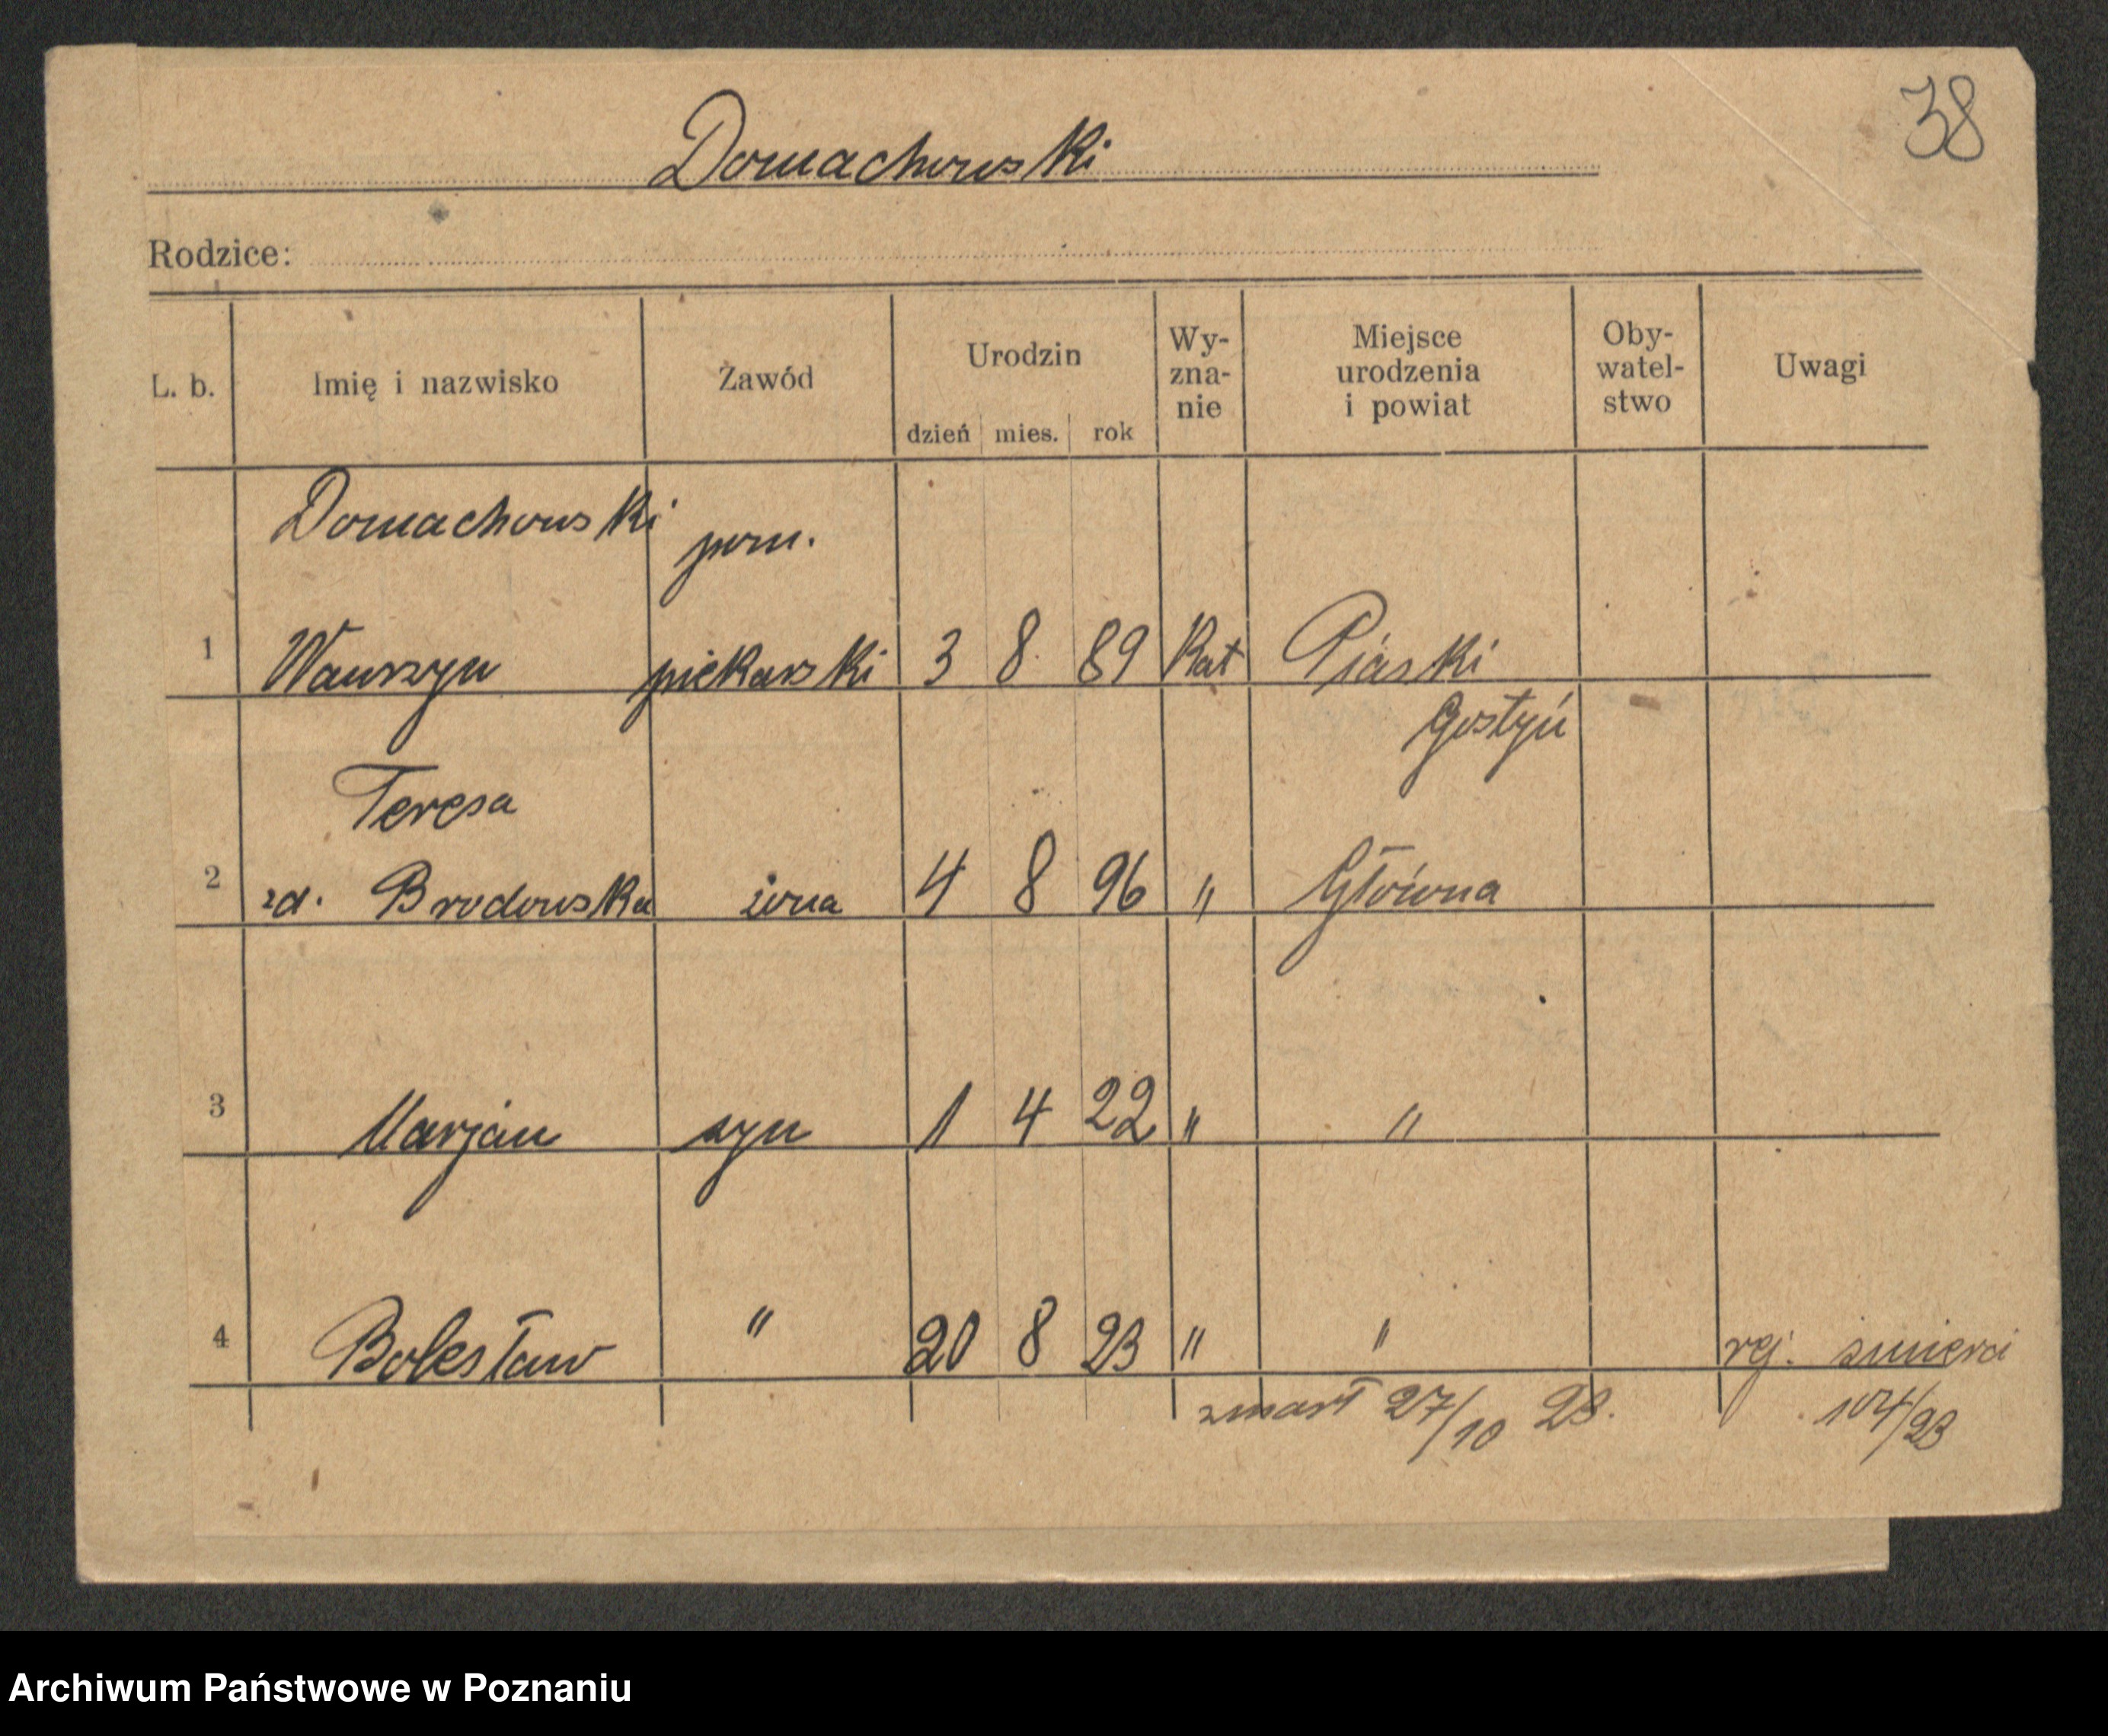 38
Domachowski
Rodzice:
L. b. Imię i nazwisko Zawód Urodzin dzień mies. rok Wy-zna-nie Miejsce urodzenia i powiat Oby-watel-stwo Uwagi
Domachowski pom.
1 Wawrzyn piekarski 3 8 89 Kat Piaski
Gostyń
Teresa
2 zd. Brodowska żona 4 8 96 " Główna
3 Marjan syn 1 4 22 " "
4 Bolesław " 20 8 23 " " rej. śmierci
zmarł 27/10 23. 104/23
Archiwum Państwowe w Poznaniu